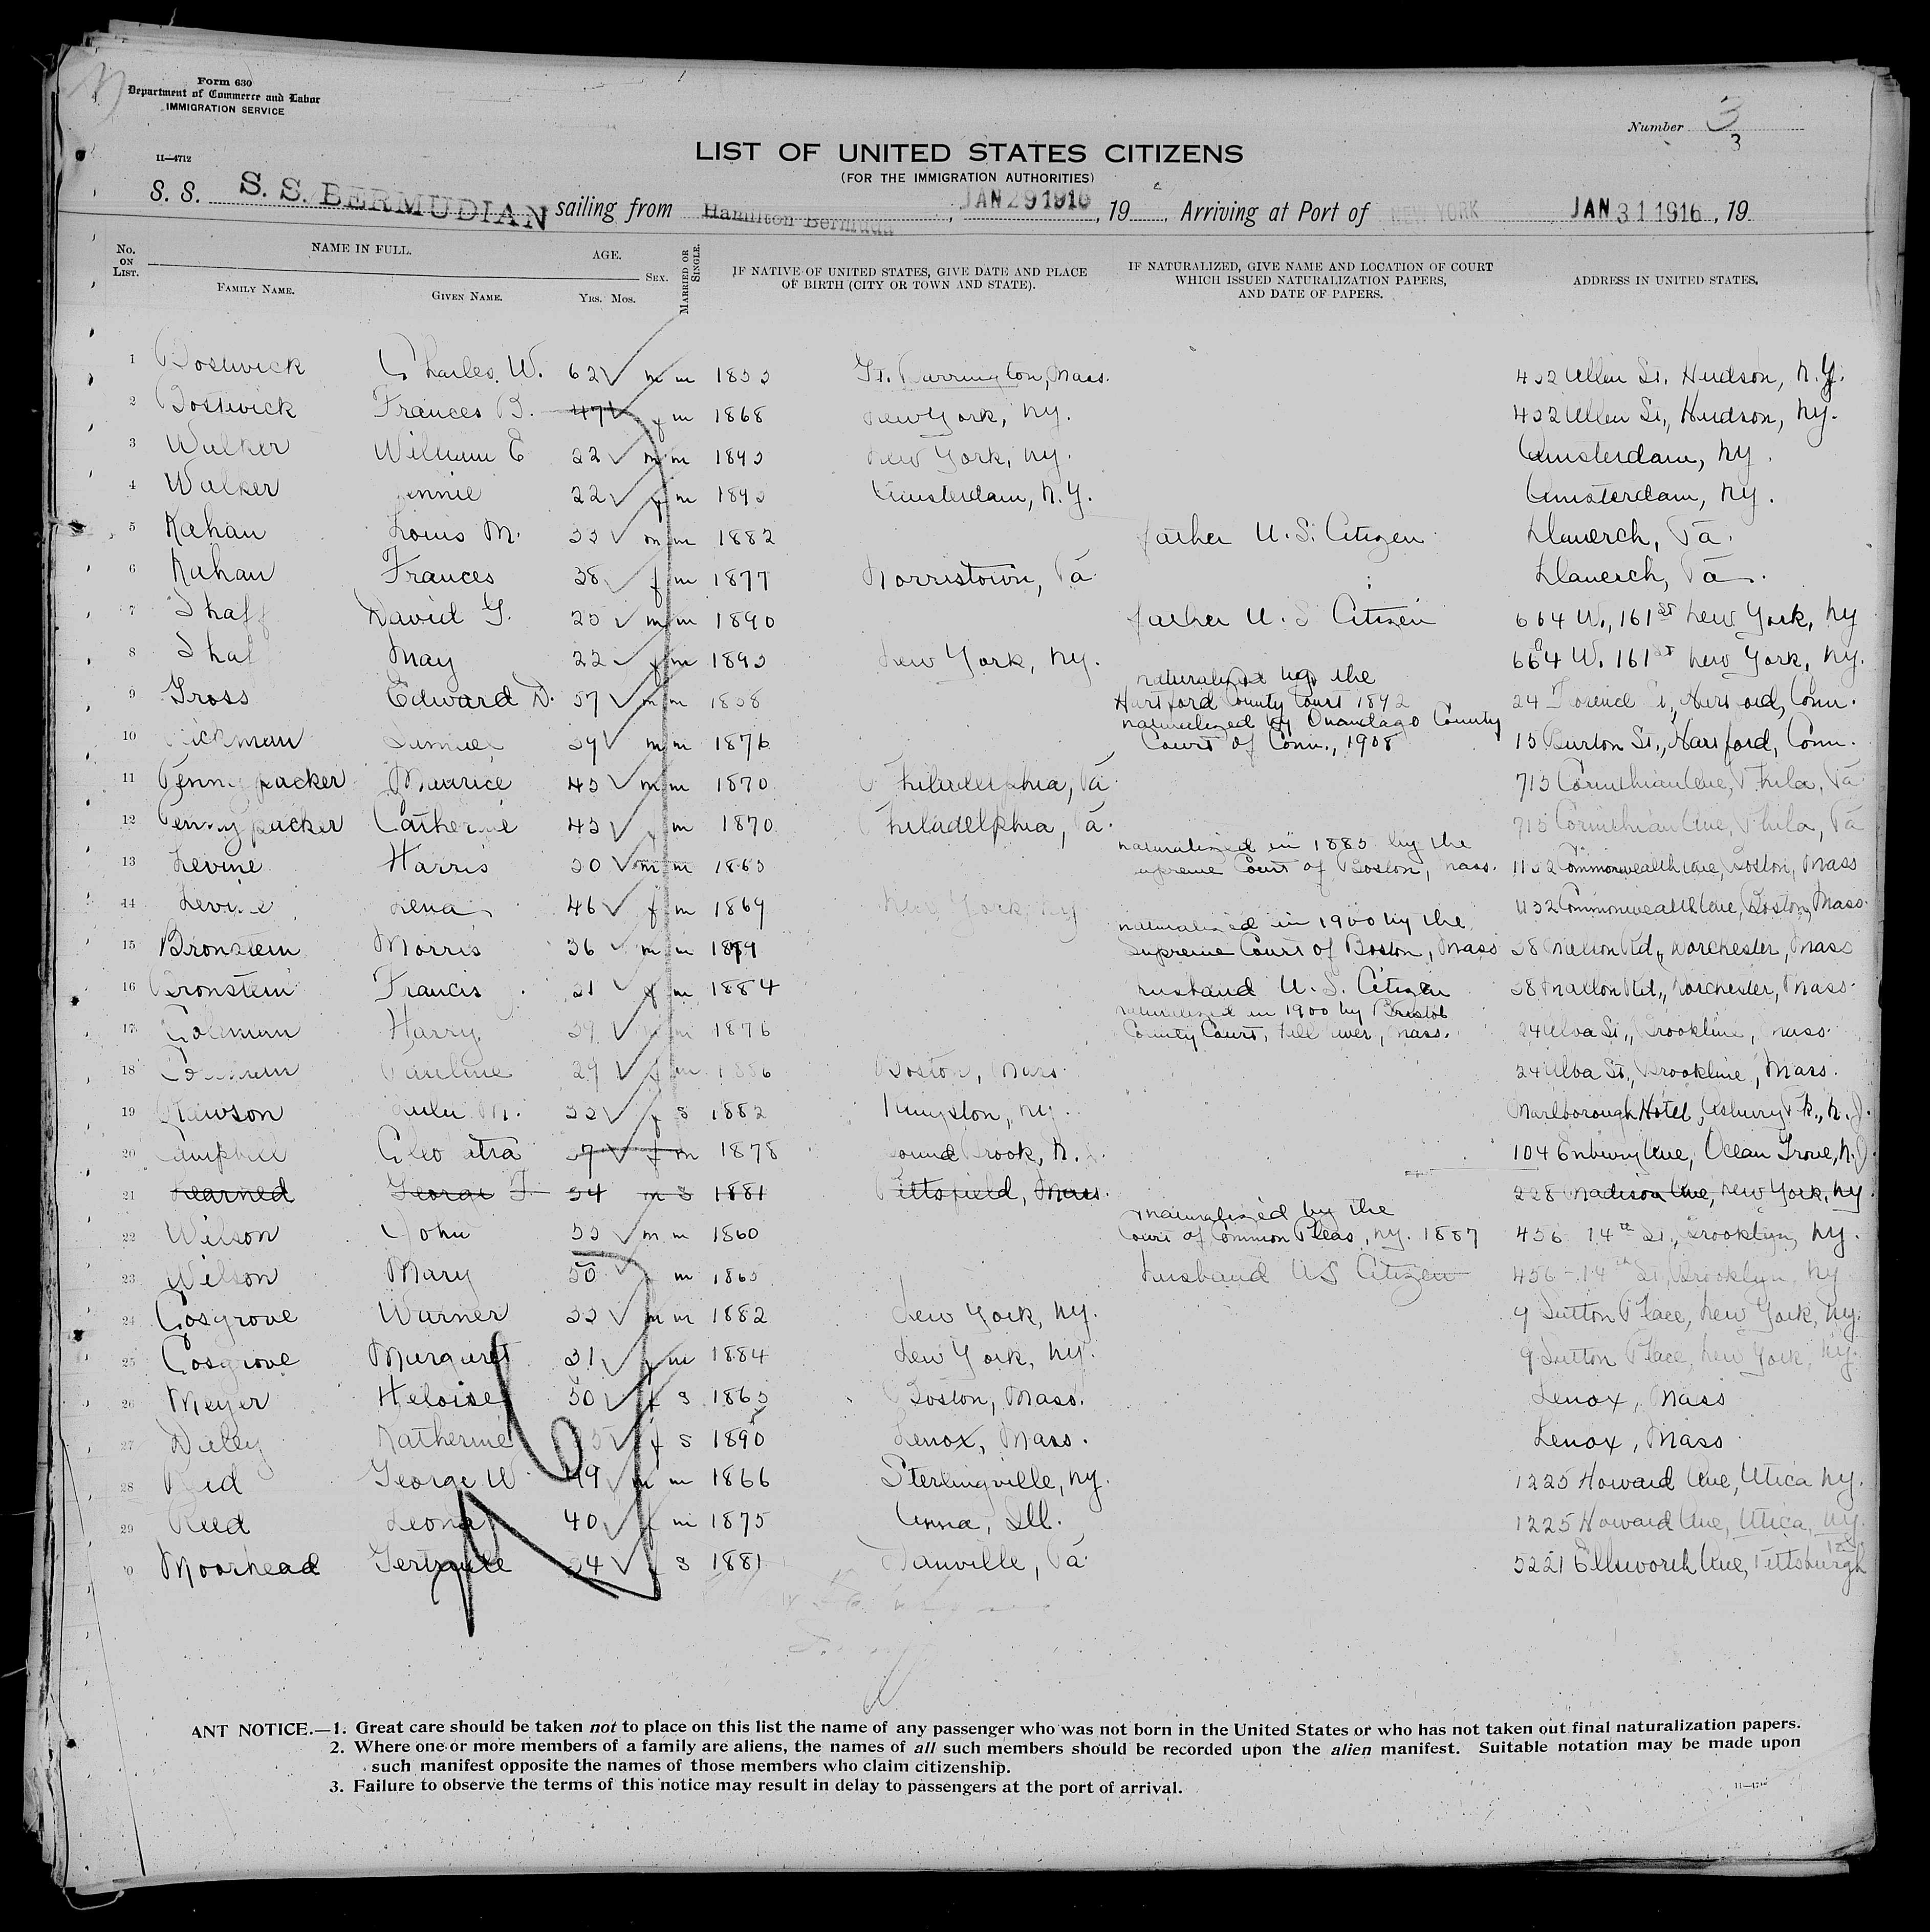 Form 630
Department of Commerce and Labor
IMMIGRATION SERVICE
Number 3
3
11—4712
LIST OF UNITED STATES CITIZENS
(FOR THE IMMIGRATION AUTHORITIES)
S. S. S. S. BERMUDIAN sailing from Hamilton Bermuda, JAN 29 1916, 19 , Arriving at Port of NEW YORK JAN 31 1916, 19
No. ON LIST. NAME IN FULL. FAMILY NAME. GIVEN NAME. AGE. YRS. MOS. SEX. MARRIED OR SINGLE. IF NATIVE OF UNITED STATES, GIVE DATE AND PLACE OF BIRTH (CITY OR TOWN AND STATE). IF NATURALIZED, GIVE NAME AND LOCATION OF COURT WHICH ISSUED NATURALIZATION PAPERS, AND DATE OF PAPERS. ADDRESS IN UNITED STATES.
1 Bostwick Charles W. 62 m m 1853 Gt. Barrington, Mass. 432 Allen St. Hudson, N.Y.
2 Bostwick Frances B. 47 f m 1868 New York, Ny. 432 Allen St., Hudson, Ny.
3 Walker William E 22 m m 1893 New York, Ny. Amsterdam, Ny.
4 Walker Jennie 22 f m 1893 Amsterdam, N.Y. Amsterdam, Ny.
5 Kahan Louis M. 33 m m 1882 father U.S. Citizen Llanerch, Pa.
6 Kahan Frances 38 f m 1877 Norristown, Pa Llanerch, Pa.
7 Shaff David G. 25 m m 1890 father U.S Citizen 664 W., 161st New York, Ny
8 Shaf May 22 f m 1893 New York, Ny. 664 W. 161st New York, Ny.
9 Gross Edward D. 57 m m 1858 naturalized by the Hartford County Court 1892 24 Florence St., Hartford, Conn.
10 ickman Samuel 39 m m 1876 naturalized by Onandago County Court of Conn., 1908 15 Burton St., Hartford, Conn.
11 Pennypacker Maurice 45 m m 1870 Philadelphia, Pa 715 Corinthian Ave, Phila, Pa
12 Pennypacker Catherine 45 f m 1870 Philadelphia, Pa. 715 Corinthian Ave, Phila, Pa
13 Levine Harris 50 m m 1865 naturalized in 1885 by the Supreme Court of Boston, Mass. 1132 Commonwealth Ave, Boston, Mass
14 Levine Lena 46 f m 1869 New York, Ny 1132 Commonwealth Ave, Boston, Mass.
15 Bronstein Morris 36 m m 1879 naturalized in 1900 by the Supreme Court of Boston, Mass 38 Mellon Rd., Dorchester, Mass
16 Bronstein Francis 31 f m 1884 husband U.S. Citizen 38 Rd., Dorchester, Mass.
17 Coleman Harry 39 m m 1876 naturalized in 1900 by Bristol County Court, Fall River, Mass. 24 Alba St., Brookline, Mass.
18 Coleman Pauline 29 f m 1886 Boston, Mass. 24 Alba St., Brookline, Mass.
19 Rawson Lulu M. 33 f s 1882 Kingston, Ny. Marlborough Hotel, Asbury Pk., N.J.
20 Campbell Cleo atra 7 f m 1878 Bound Brook, N.J. 104 Embury Ave, Ocean Grove, N.J.
21 Learned George F. 34 m s 1881 Pittsfield, Mass. 228 Madison Ave, New York, Ny
22 Wilson John 55 m m 1860 naturalized by the Court of Common Pleas, Ny. 1887 456 14th St., Brooklyn, Ny.
23 Wilson Mary 50 m 1865 husband US Citizen 456 - 14th St, Brooklyn, Ny
24 Cosgrove Warner 33 m m 1882 New York, Ny. 9 Sutton Place, New York, Ny.
25 Cosgrove Margaret 31 f m 1884 New York, Ny. 9 Sutton Place, New York, Ny.
26 Meyer Heloise 50 f s 1865 Boston, Mass. Lenox, Mass
27 Katherine 25 f s 1890 Lenox, Mass. Lenox, Mass
28 Reed George W. 49 m m 1866 Sterlingville, Ny. 1225 Howard Ave, Utica Ny.
29 Reed Leona 40 f m 1875 Anna, Ill. 1225 Howard Ave, Utica, Ny.
30 Moorhead Gertrude 34 f s 1881 Danville, Pa 5221 Ellsworth Ave, Pittsburgh Pa
ANT NOTICE.—1. Great care should be taken not to place on this list the name of any passenger who was not born in the United States or who has not taken out final naturalization papers.
2. Where one or more members of a family are aliens, the names of all such members should be recorded upon the alien manifest. Suitable notation may be made upon
such manifest opposite the names of those members who claim citizenship.
3. Failure to observe the terms of this notice may result in delay to passengers at the port of arrival.